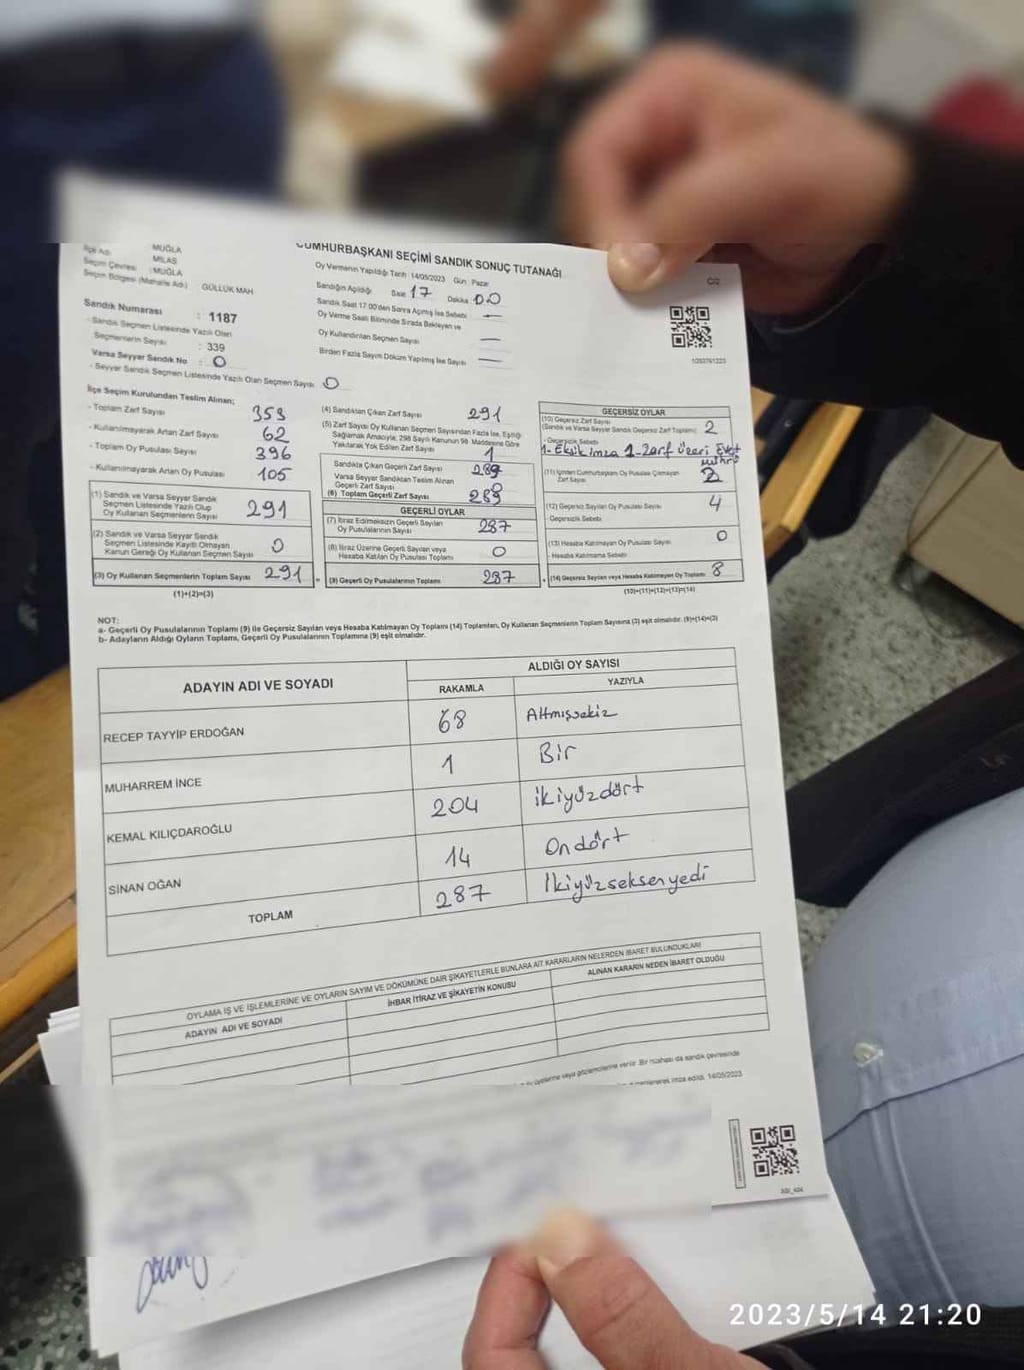 CUMHURBAŞKANI SEÇİMİ SANDIK SONUÇ TUTANAĞI
C/2
İlçe Adı MUĞLA
MİLAS
Seçim Çevresi : MUĞLA
Seçim Bölgesi (Mahalle Adı) GÜLLÜK MAH
Sandık Numarası : 1187
- Sandık Seçmen Listesinde Yazılı Olan
Seçmenlerin Sayısı : 339
Varsa Seyyar Sandık No : 0
- Seyyar Sandık Seçmen Listesinde Yazılı Olan Seçmen Sayısı 0
Oy Vermenin Yapıldığı Tarih :14/05/2023 Gün : Pazar
Sandığın Açıldığı Saat 17 Dakika 00
Sandık Saat 17:00'den Sonra Açılmış İse Sebebi —
Oy Verme Saati Bitiminde Sırada Bekleyen ve
Oy Kullandırılan Seçmen Sayısı —
Birden Fazla Sayım Döküm Yapılmış İse Sayısı —
1093761223
İlçe Seçim Kurulundan Teslim Alınan;
- Toplam Zarf Sayısı 353
- Kullanılmayarak Artan Zarf Sayısı 62
- Toplam Oy Pusulası Sayısı 396
- Kullanılmayarak Artan Oy Pusulası 105
(1) Sandık ve Varsa Seyyar Sandık
Seçmen Listesinde Yazılı Olup
Oy Kullanan Seçmenlerin Sayısı 291
(2) Sandık ve Varsa Seyyar Sandık
Seçmen Listesinde Kayıtlı Olmayan
Kanun Gereği Oy Kullanan Seçmen Sayısı 0
(3) Oy Kullanan Seçmenlerin Toplam Sayısı 291
(1)+(2)=(3)
(4) Sandıktan Çıkan Zarf Sayısı 291
(5) Zarf Sayısı Oy Kullanan Seçmen Sayısından Fazla İse, Eşitliği
Sağlamak Amacıyla; 298 Sayılı Kanunun 98. Maddesine Göre
Yakılarak Yok Edilen Zarf Sayısı 1
Sandıkta Çıkan Geçerli Zarf Sayısı 289
Varsa Seyyar Sandıktan Teslim Alınan
Geçerli Zarf Sayısı 0
(6) Toplam Geçerli Zarf Sayısı 289
GEÇERLİ OYLAR
(7) İtiraz Edilmeksizin Geçerli Sayılan
Oy Pusulalarının Sayısı 287
(8) İtiraz Üzerine Geçerli Sayılan veya
Hesaba Katılan Oy Pusulası Toplamı 0
(9) Geçerli Oy Pusulalarının Toplamı 287
GEÇERSİZ OYLAR
(10) Geçersiz Zarf Sayısı
(Sandık ve Varsa Seyyar Sandık Geçersiz Zarf Toplamı) 2
- Geçersizlik Sebebi
1- Eksik imza 1-Zarf Üzeri Evet
mührü
(11) İçinden Cumhurbaşkanı Oy Pusulası Çıkmayan
Zarf Sayısı 2
(12) Geçersiz Sayılan Oy Pusulası Sayısı 4
- Geçersizlik Sebebi
(13) Hesaba Katılmayan Oy Pusulası Sayısı 0
- Hesaba Katılmama Sebebi
(14) Geçersiz Sayılan veya Hesaba Katılmayan Oy Toplamı 8
(10)+(11)+(12)+(13)=(14)
NOT:
a- Geçerli Oy Pusulalarının Toplamı (9) ile Geçersiz Sayılan veya Hesaba Katılmayan Oy Toplamı (14) Toplamları, Oy Kullanan Seçmenlerin Toplam Sayısına (3) eşit olmalıdır. (9)+(14)=(3)
b- Adayların Aldığı Oyların Toplamı, Geçerli Oy Pusulalarının Toplamına (9) eşit olmalıdır.
ADAYIN ADI VE SOYADI
ALDIĞI OY SAYISI
RAKAMLA YAZIYLA
RECEP TAYYİP ERDOĞAN 68 Altmışsekiz
MUHARREM İNCE 1 Bir
KEMAL KILIÇDAROĞLU 204 ikiyüzdört
SİNAN OĞAN 14 Ondört
TOPLAM 287 İkiyüzseksenyedi
OYLAMA İŞ VE İŞLEMLERİNE VE OYLARIN SAYIM VE DÖKÜMÜNE DAİR ŞİKAYETLERLE BUNLARA AİT KARARLARIN NELERDEN İBARET BULUNDUKLARI
ADAYIN ADI VE SOYADI İHBAR İTİRAZ VE ŞİKAYETİN KONUSU ALINAN KARARIN NEDEN İBARET OLDUĞU
üyelerine veya gözlemcilerine verilir. Bir nüshası da sandık çevresinde
imza edildi. 14/05/2023
2023/5/14 21:20